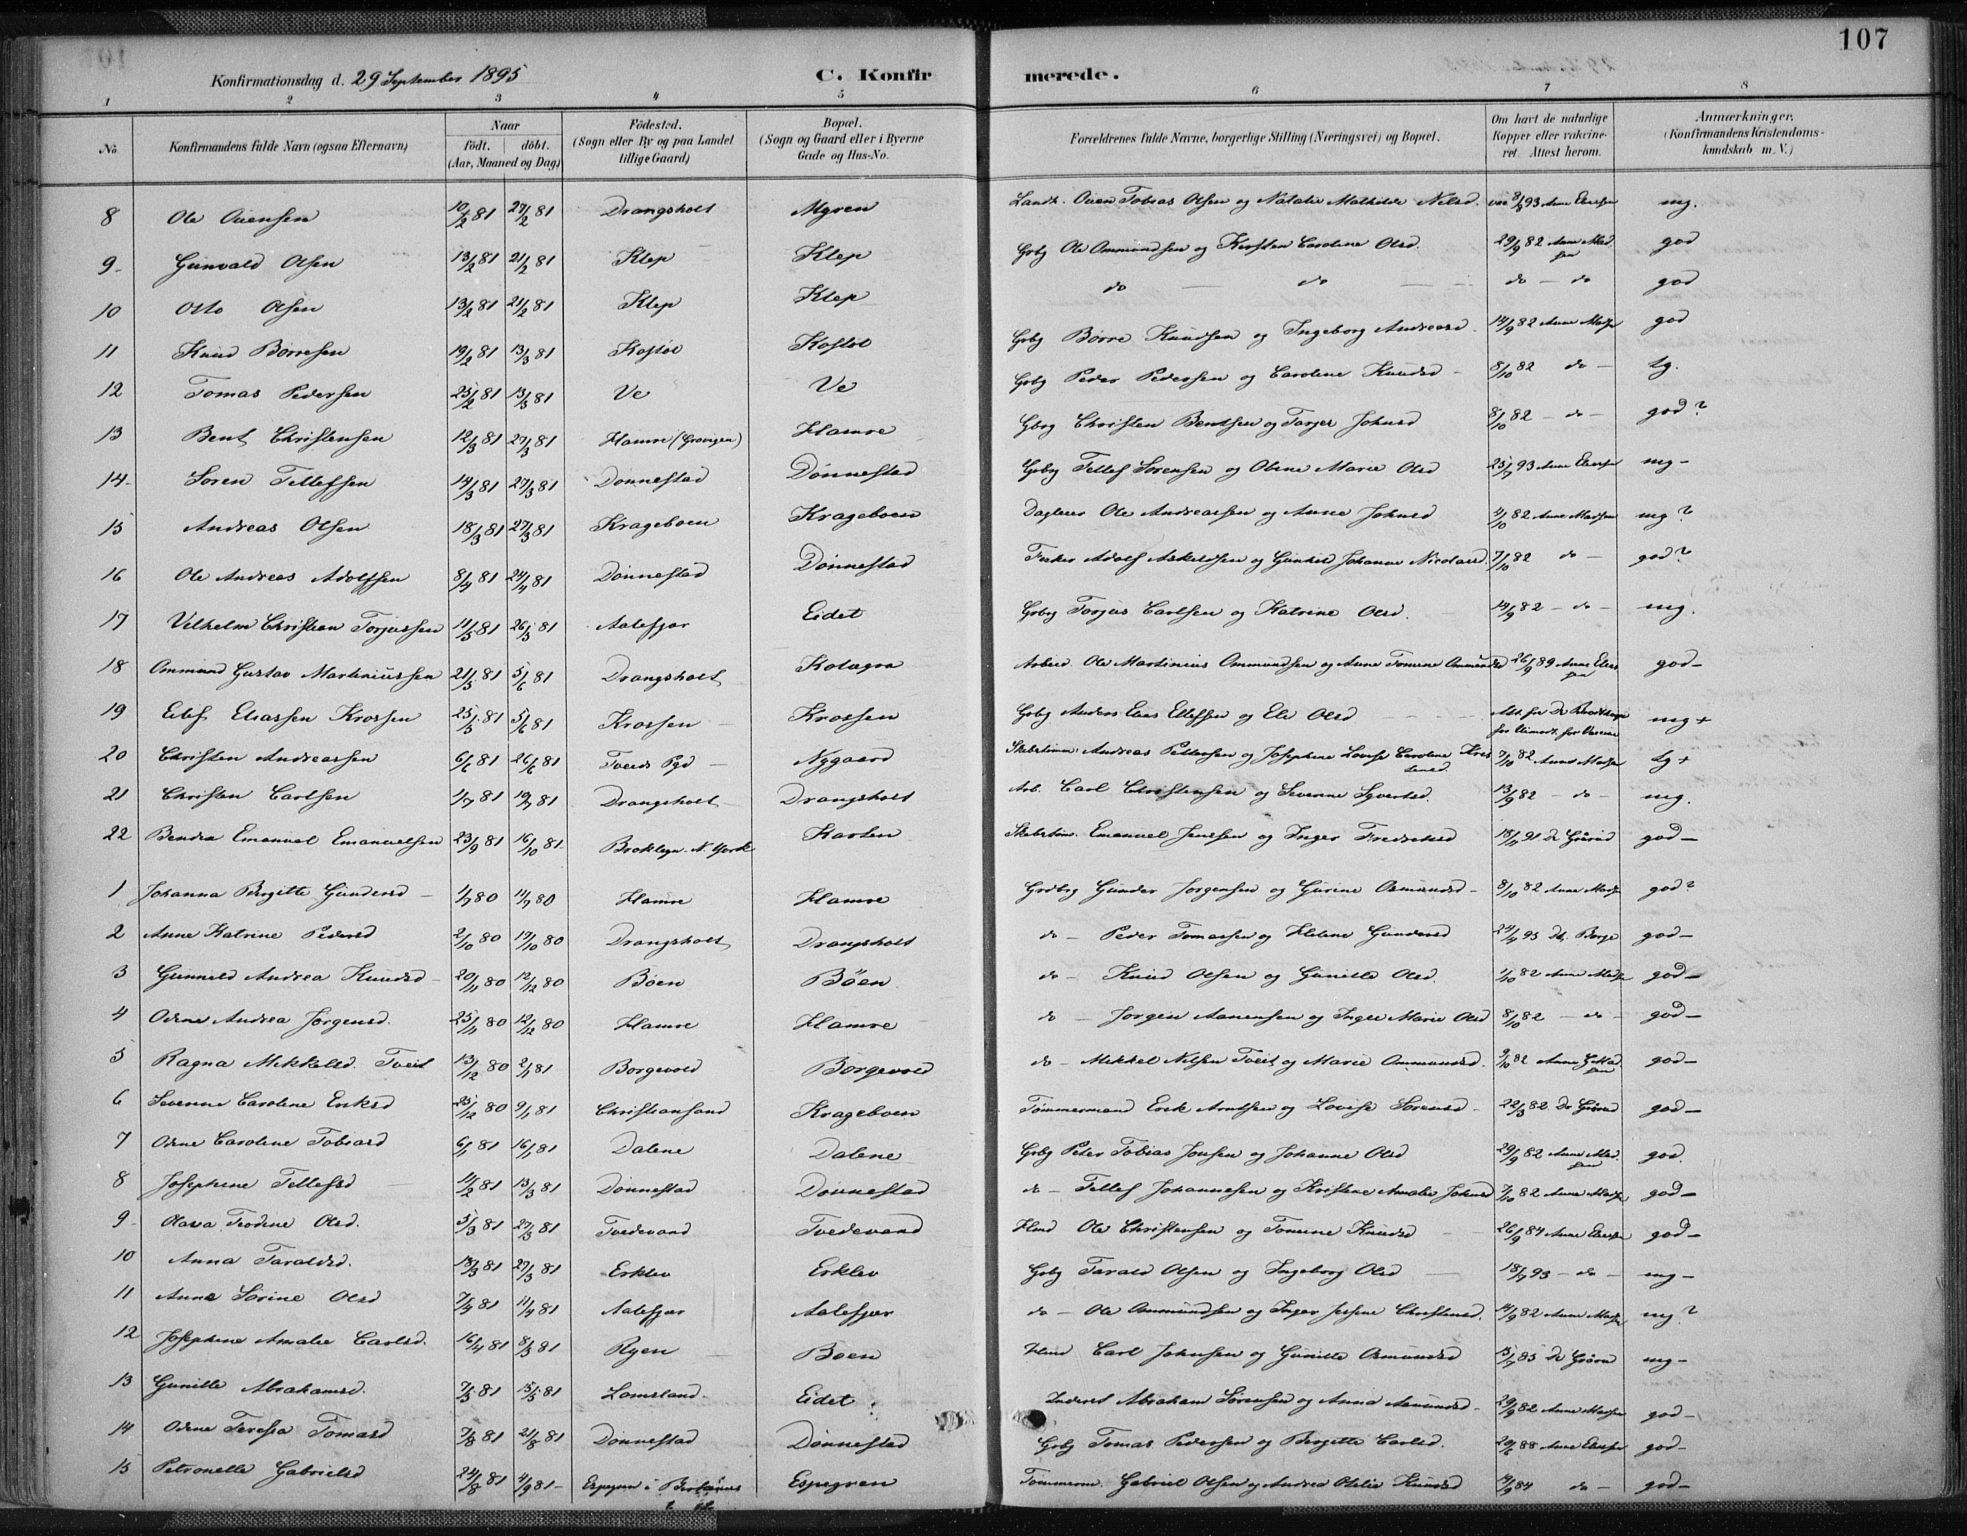 107
Konfirmationsdag d. 29 September 1895 C. Konfirmerede.
1 2 3 4 5 6 7 8
No Konfirmandens fulde Navn (ogsaa Efternavn) Naar født. døbt. (Aar, Maaned og Dag) Fødested. (Sogn eller By og paa Landet tillige Gaard) Bopæl. (Sogn og Gaard eller i Byerne Gade og Hus-No. Forældrenes fulde Navne, borgerlige Stilling (Næringsvei) og Bopæl. Om havt de naturlige Kopper eller vakcineret. Attest herom. Anmærkninger. (Konfirmandens Kristendomskundskab m. V.)
8 Ole Ovensen 10/2 81 27/2 81 Drangsholt Mgren Oven Tobias Olsen og Natalie Mathilde Nelsd. mg.
9 Gunvald Olsen 13/2 81 21/2 81 Klep Klep Gbg Ole Ommundsen og Kirsten Caroline Olsd. 29/9 82 Anne Madsen god
10 Otto Olsen 13/2 81 21/2 81 Klep Klep do — do — do — do god
11 Knud Børresen 19/2 81 13/3 81 Kostøl Kostøl Gbg Børre Knudsen og Ingeborg Andreasd. 14/9 82 Anne Mads god
12 Tomas Pedersen 25/2 81 13/3 81 Ve Ve Gbg Peder Pedersen og Caroline Knudsd 8/10 82 do — tg.
13 Bent Christensen 12/3 81 27/3 81 Hamre (Grovigen) Hamre Gbrg Christen Bentsen og Torjer Johnsd 8/10 82 — do — god?
14 Soren Tellefsen 14/3 81 27/3 81 Donnestad Dönnestad Gbg Tellef Sorensen og Oline Marie Olsd 25/7 93 mg —
15 Andreas Olsen 18/3 81 27/3 81 Krageboen Krageboen Ole Andreassen og Anne Johnsd 4/10 82 Anne Madsen mg?
16 Ole Andreas Adolfsen 8/4 81 24/4 81 Dönnestad Dönnestad Adolf Askeldsen og Gunhild Johanne Nicolaisd. 7/10 82 do — god?
17 Vilhelm Christian Torjussen 11/5 81 26/5 81 Aalefjær Eidet Gbg Torjus Carlsen og Katrine Olsd. 14/9 82 — do — mg.
18 Ommund Gustav Martiniussen 21/5 81 5/6 81 Drangsholt Kolagra Arbeid. Ole Martinius Ommundsen og Anne Tomine Ommundsd 26/9 89 god —
19 Ellef Eliassen Krossen 25/5 81 5/6 81 Krossen Krossen Gbg Anders Elias Ellefsen og Eli Olsd mg +
20 Christen Andreassen 6/6 81 26/6 81 Tveds Pgd Nygaard Andreas Pettersen og Josephine Lovise Caroline 7/10 82 Anne Madsen tg +
21 Christen Carlsen 1/7 81 19/7 81 Drangsholt Drangsholt Arb. Carl Christensen og Severine Syvertsd. 13/9 82 — do — mg.
22 Bendra Emanuel Emanuelsen 23/9 81 16/10 81 Broklyn. N. York Karlen Emanuel Jensen og Inger Fredriksd god —
1 Johanna Birgitte Gundersd 1/7 80 11/7 80 Hamre Hamre Grdbrg Gunder Jorgensen og Gurine Osmundsd 8/10 82 Anne Mads god?
2 Anne Katrine Pedersd 2/10 80 17/10 80 Drangsholt Drangsholt do — Peder Tomassen og Helene Gundersd 24/4 95 Dr. Borge god —
3 Gunneld Andrea Knudsd 20/11 80 12/12 80 Böen Böen do — Knud Olsen og Gunille Olsd. 1/10 82 Anne Madsen god —
4 Odine Andrea Jorgensd. 25/11 80 12/12 80 Hamre Hamre do — Jorgen Aanensen og Inger Marie Olsd 8/10 82 — do — god —
5 Ragna Mikkelsd. Tveit 13/12 80 2/1 81 Borgevold Borgevold do — Mikkel Nilsen Tveit og Marie Ommundsd. 9/10 82 Anne G. Madsen god —
6 Severine Caroline Eriksd 25/12 80 9/1 81 Christiansand Krageboen Tömmermand Erik Arntsen og Lovise Sorensd 22/3 82 god —
7 Odine Caroline Tobiasd 6/1 81 16/1 81 Dalene Dalene Gbg Peter Tobias Jonsen og Johanne Olsd 29/9 82 Anne Madsen god.
8 Josephine Tellefsd 11/2 81 13/3 81 Dönnestad Dönnestad do — Tellef Johannesen og Kristine Amalie Johnsd 7/10 82 Anne Madsen god —
9 Olava Teodine Olsd. 5/3 81 27/3 81 Tvedevand Tvedevand Hmd Ole Christensen og Tomine Knudsd 26/9 84 god —
10 Anna Taraldsd. 13/3 81 27/3 81 Erklev Erklev Gbg Tarald Olsen og Ingeborg Olsd 18/7 93 — do — mg —
11 Anne Sörine Olsd 7/4 81 11/4 81 Aalefjær Aalefjær do — Ole Ommundsen og Inger Jessine Christensd. 14/9 82 Anne Madsen mg?
12 Josephine Amalie Carlsd. 16/4 81 8/5 81 Ryen Boen Hmd Carl Johnsen og Gunille Osmundsd mg —
13 Gunille Abrahamsd. 7/5 81 15/5 81 Lomsland Eidet Inderst Abraham Sörensen og Anna Asmundsd 29/9 82 Anne Madsen god —
14 Odine Teresia Tomasd 7/8 81 21/8 81 Donnestad Dönnestad Gbg Tomas Pedersen og Birgitte Carlsd. god —
15 Petronelle Gabrielsd 24/8 81 4/9 81 — Espegren i Espegren Tömmerm. Gabriel Olsen og Andrea Otilie Knudsd do — god —